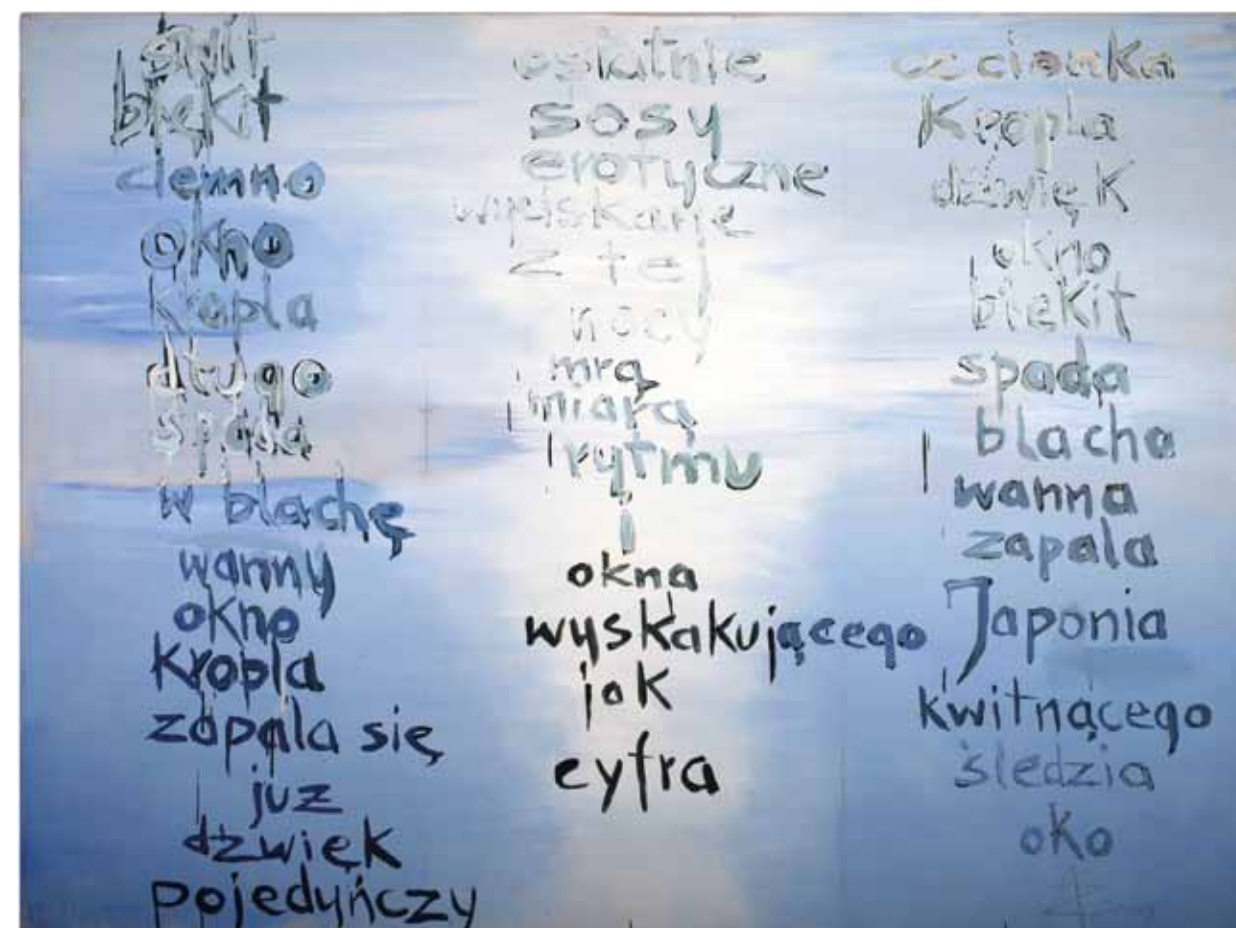 świt
błękit
ciemno
okno
kropla
długo
spada
w blachę
wanny
okno
kropla
zapala się
juz
dzwięk
pojedyńczy
ostatnie
sosy
erotyczne
wyciskane
z tej
nocy
mrą
miarą
rytmu
i
okna
wyskakującego
jak
cyfra
czcionka
kropla
dźwięk
okno
błekit
spada
blacha
wanna
zapala
Japonia
kwitnącego
śledzia
oko